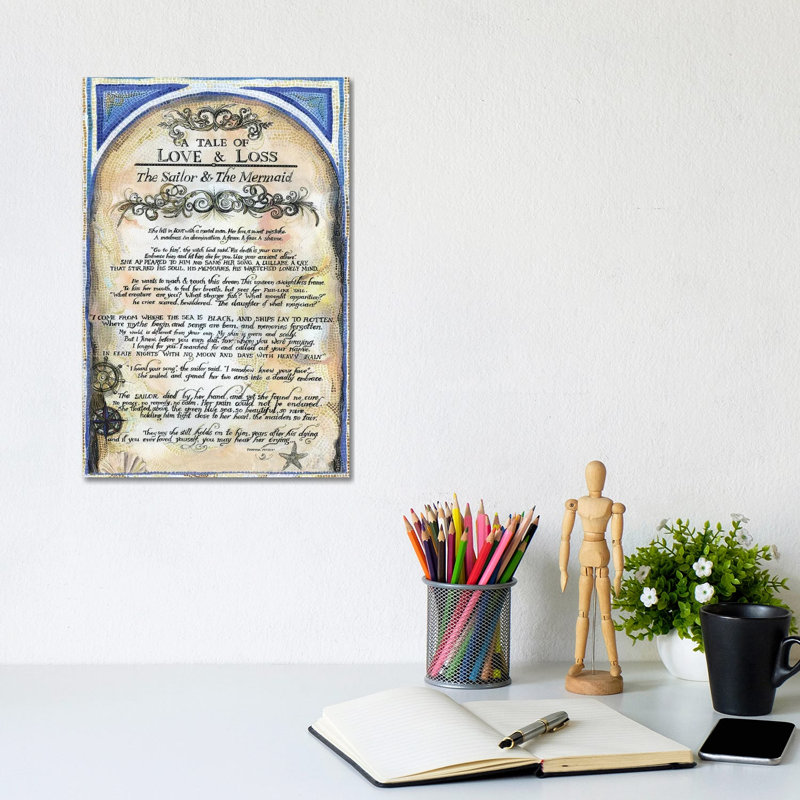 A TALE OF
LOVE & LOSS
The Sailor & The Mermaid
She fell in love with a mortal man. Her love, a sweet mistake.
A madness. An abomination. A fence. A foe. A shame.
"Go to him", the witch had said. "His death is your cure.
Embrace him and let him die for you. Use your ancient allure".
SHE APPEARED TO HIM AND SANG HER SONG, A LULLABY, A CRY,
THAT STIRRED HIS SOUL, HIS MEMORIES, HIS WRETCHED LONELY MIND.
He wants to reach & touch this dream. This unseen weightless frame.
To kiss her mouth, to feel her breath, but sees her FISH-LIKE TAIL.
"What creature are you? What strange fish? What moonlit apparition?"
he cries scarred, bewildered. "The daughter of what magician?"
"I COME FROM WHERE THE SEA IS BLACK, AND SHIPS LAY TO ROTTEN.
Where myths begin, and songs are born, and memories forgotten.
My world is different from your own. My skin is green and scaly.
But I knew before you even did, for whom you were praying.
I longed for you. I searched for and called out your name,
IN EERIE NIGHTS WITH NO MOON AND DAYS WITH HEAVY RAIN"
"I heard your song", the sailor said. "I somehow knew your face".
She smiled and opened her two arms into a deadly embrace.
The SAILOR died by her hand, and yet she found no cure.
No peace, no remedy, no calm. Her pain could not be endured.
She floated above the green blue sea, so beautiful, so rare,
holding him tight close to her heart, the maiden so fair.
They say she still holds on to him, years after his dying
and if you ever loved yourself, you may hear her crying...